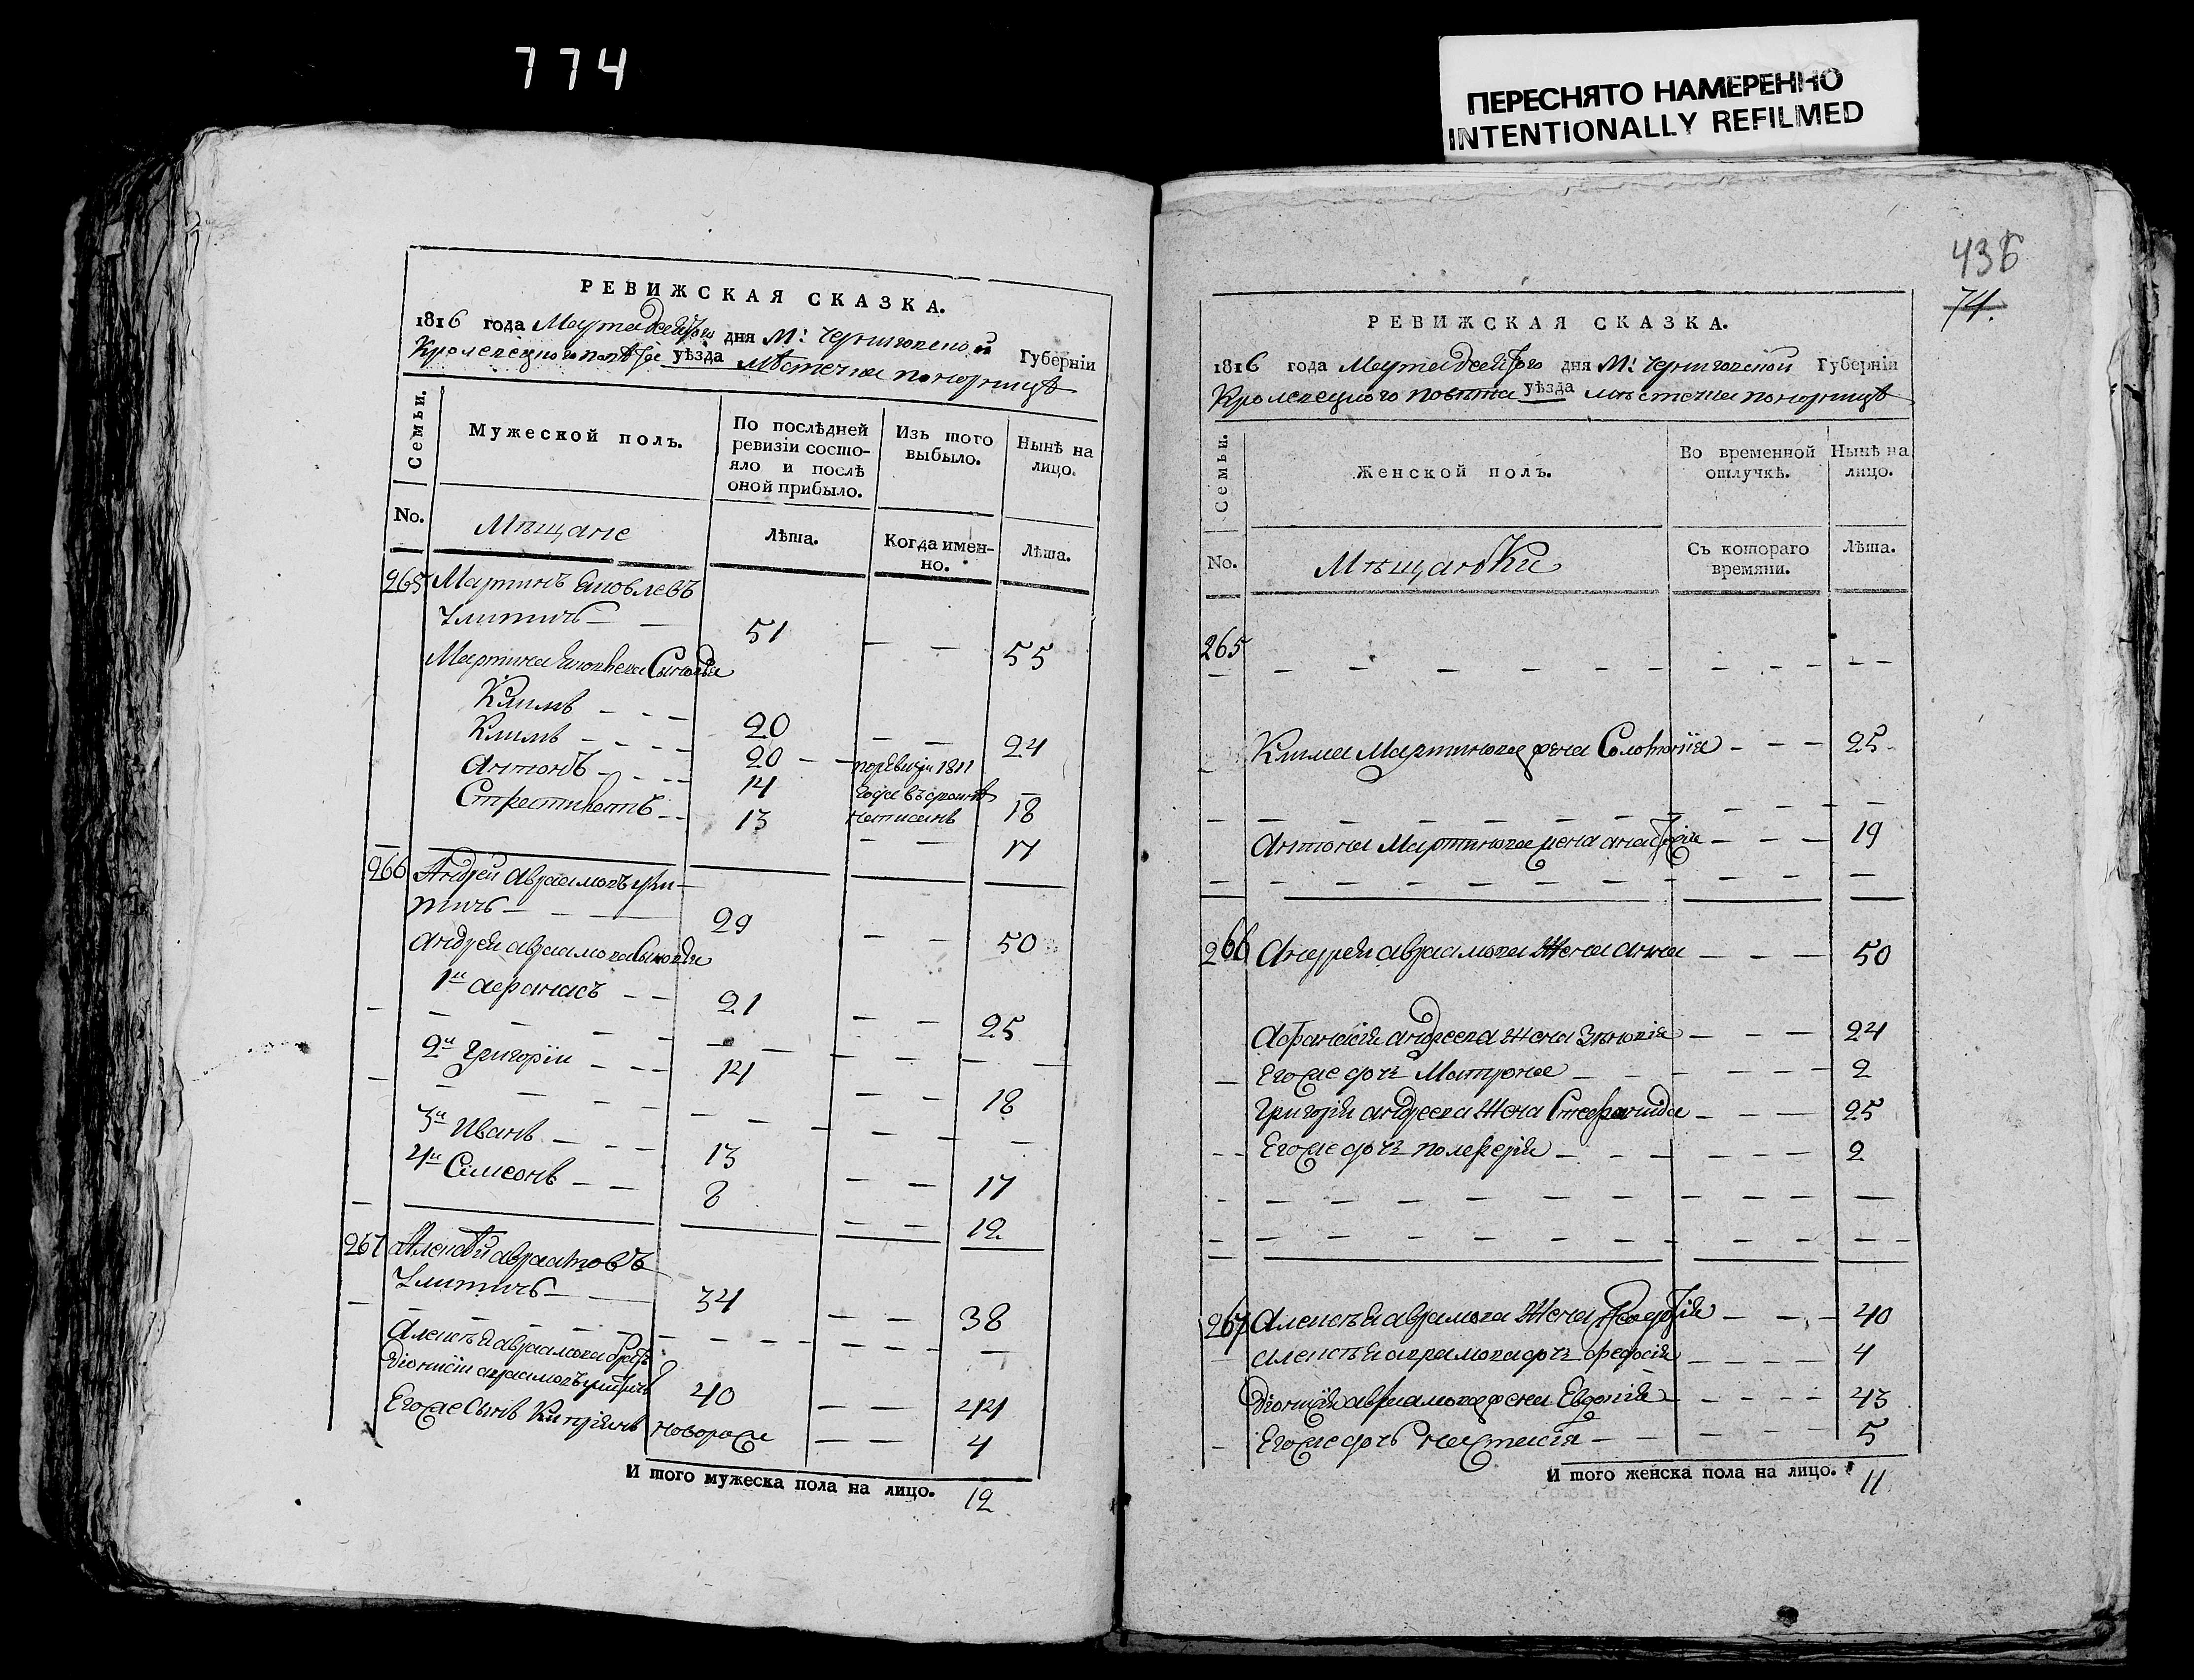 774
ПЕРЕСНЯТО НАМЕРЕННО
INTENTIONALLY REFILMED
РЕВИЖСКАЯ СКАЗКА.
1816 года Марта дня М: Черниговской Губерніи
Кролевецкого уѣзда Мѣстечка Понорницѣ
Семьи.
Мужеской полъ.
По послѣдней ревизіи состояло и послѣ оной прибыло.
Изъ того выбыло.
Нынѣ на лицо.
No.
Мѣщане
Лѣта.
Когда именно.
Лѣта.
265 Мартинъ Яковлевъ
Улитичъ — — 51 — — 55
Мартина Яковлева Сыновья
Климъ - - - 20 — — 24
Климъ - - - - 20 - - по ревизіи 1811
Антонъ - - - - 14 — 18
написанъ
13 — — 17
266 Андрей Аврамовъ Ули-
тичъ — - — 29 — — 50
Андрея Аврамова Сыновья
1й Афанасъ - - 21 — — 25
2й Григоріи - - - 14 — — 18
3й Иванъ - - - 13 — — 17
4й Симеонъ - - 8 — — 12
267 Алексѣй Авраамовъ
Улитичъ — — 34 — — 38
Алексѣя Авраамова братъ
Діонисіи Авраамовъ Улитичъ 40 — — 44
Его же Сынъ Кипріянъ новорож — — 4
И того мужеска пола на лицо. 12
436
74.
РЕВИЖСКАЯ СКАЗКА.
1816 года Марта дня М: Черниговской Губерніи
Кролевецкого повѣта уѣзда мѣстечка Понорницѣ
Семьи.
Женской полъ.
Во временной отлучкѣ.
Нынѣ на лицо.
No.
Мѣщанки
Съ котораго времяни.
Лѣта.
265
Клима Мартинова жена Соломонія - - - 25
Антона Мартинова жена - - - 19
266 Андрея Аврамова Жена Анна - - - 50
Афанасія Андреева Жена Зѣновія - - - 24
Его же дочь Матрона - - - 2
Григорія Андреева Жена Стефанида - - - 25
Его же дочь - - - 2
267 Алексѣя Аврамова Жена - - - 40
Алексѣя Аврамова дочь Федосія - - - - 4
Діонисія Авраамова жена Евдокія - - - - 43
Его же дочь Настасія - - - 5
И того женска пола на лицо. 11